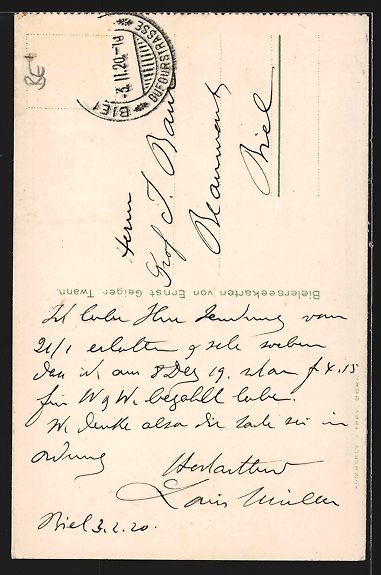 BIEL
-3.II.20.-19
* DUFOURSTRASSE *
BE
Herrn
Prof J. Baur
Beaumont
Biel
Bielerseekarten von Ernst Geiger, Twann.
Ich habe Ihre Sendung vom
21/1 erhalten & sehe soeben
dass ich am 8 Dez 19. schon f 4.15
für W & W. bezahlt habe.
Ich denke also die Sache sei in
ordnung
Hochachtend
Louis Müller
Biel 3.2.20.